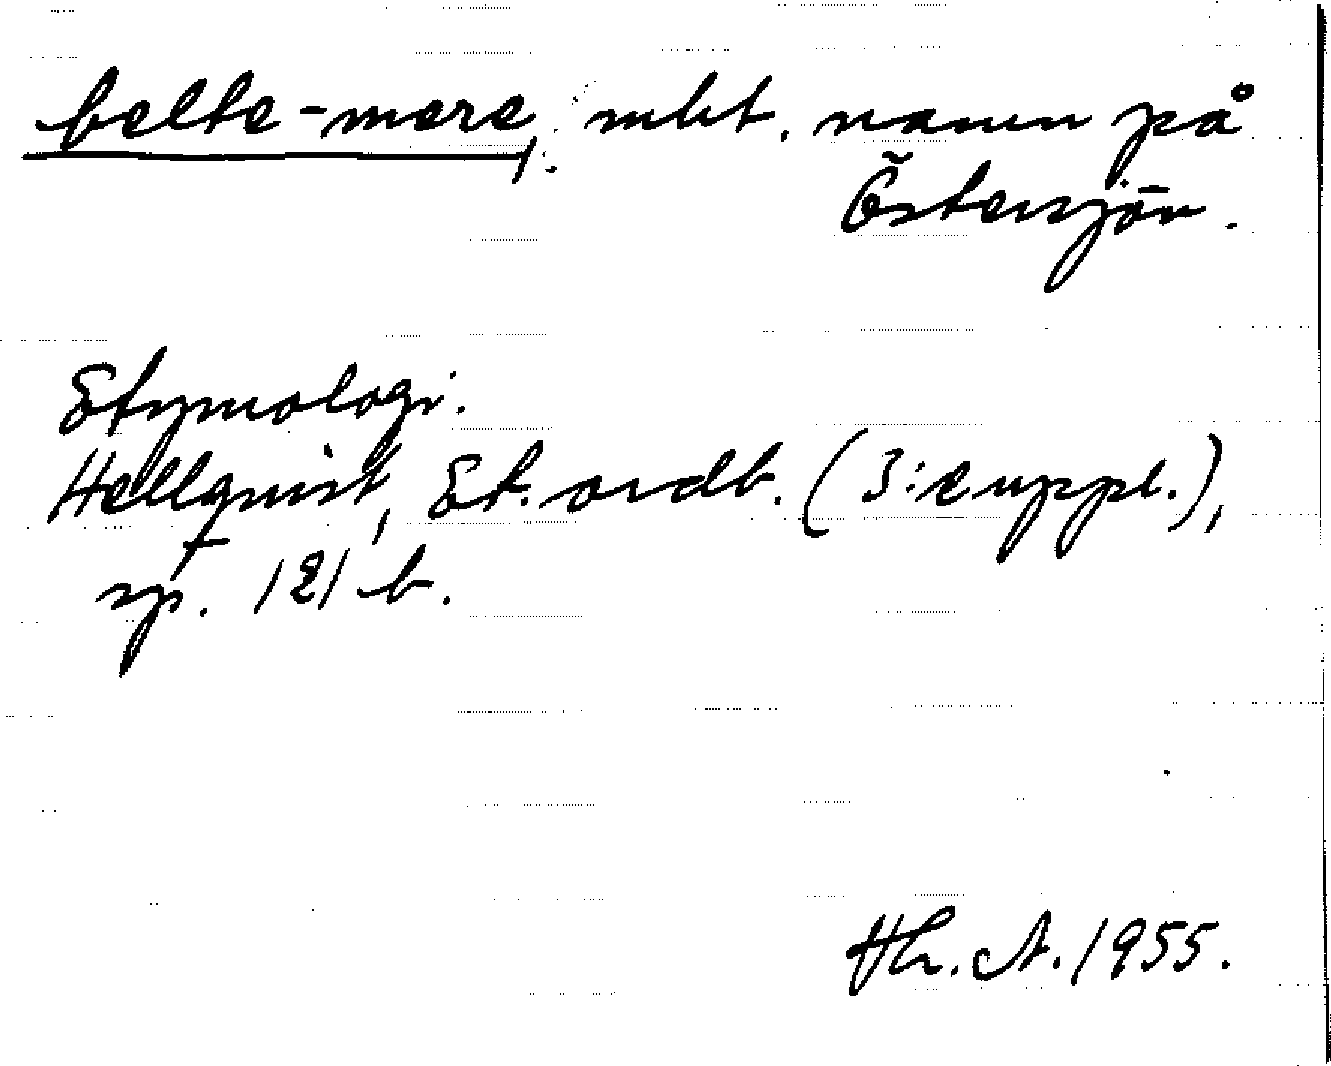 belte-mere, mht. namn på
Östersjön.
Etymologi.
Hellquist, Et. ordb. (3:e uppl.),
sp. 121 b.
Hh. A. 1955.